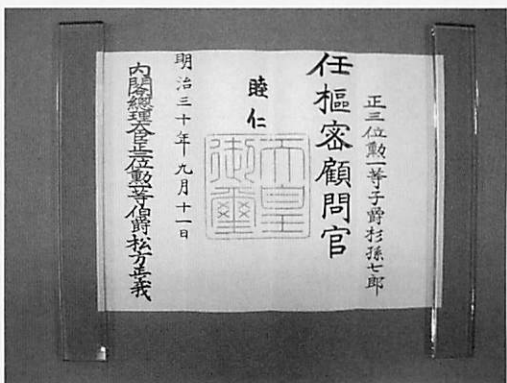 正三位勲一等子爵杉孫七郎
任樞密顧問官
睦仁
天皇御璽
明治三十年九月十一日
内閣總理大臣正二位勲一等伯爵松方正義